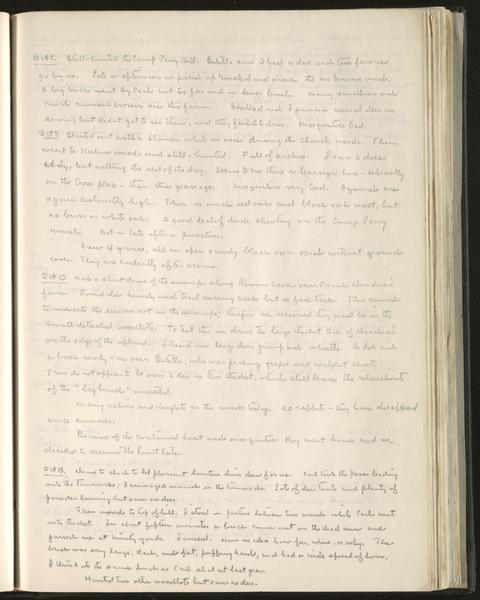 Oct 8. Still-hunted the Camp Perry Hill. Estella and I had a doe and two fawns
go by us. Late in afternoon we picked up and drove the McGowan woods.
A big buck went by Carl but too far and in dense brush. Many
much running on this farm. and I jumped several deer in
driving but didn't get to see them, and they failed to drive. Mosquitos bad.
Oct 9 Started out with a shower while we were driving the Church woods. Then
went to woods and still-hunted. Full of acorns. I saw 2 does
early, but nothing the rest of the day. Seems to me there is less sign here - especially
on the Cross place - than three years ago. Mosquitos very bad. Squirrels are
again distinctly high. There is much red oak and black oak mast, but
no burr or white oak. A good deal of duck shooting on the Camp Perry
marsh. Got in late after a puncture.
Saw 4 grouse, all in open sandy black oak scrub without ground
cover. They are evidently after acorns.
Oct 10 Made a short drive of the swamps along creek near
farm. Found old heavily used trail crossing creek but no fresh tracks. This seemed
to indicate the deer are not in the swamps; therefore we assumed they must be in the
small detached woodlots. To test this we drove the large thicket S.W. of
on the edge of the upland. I heard one large deer jump and whistle. A doe and
a buck nearly ran over Estella, who was picking grapes and couldn't shoot.
There do not appear to be over 3 deer in this thicket, which still leaves the whereabouts
of the "big bunch" unsettled.
Many robins and in the woods today. No rabbits - they have disappeared
since summer.
Because of the continued heat and mosquitos Roy went home and we
decided to resume the hunt later.
Oct 13. Came to shack to let pheasant hunters drive deer for us. Carl took the pass leading
into the tamaracks, I in the tamaracks. Lots of deer trails and plenty of
powder burning but saw no deer.
Then moved to top of hill. I stood in pasture between two woods while Carl went
into thicket. In about fifteen minutes a buck came out on the dead run and
passed me at ninety yards. I missed. Have no idea how far, where, or why. The
buck was very large, dark, and fat, puffing hard, and had a wide spread of horn.
I think it's the same buck as Carl shot at last year.
Hunted two other woodlots but saw no deer.